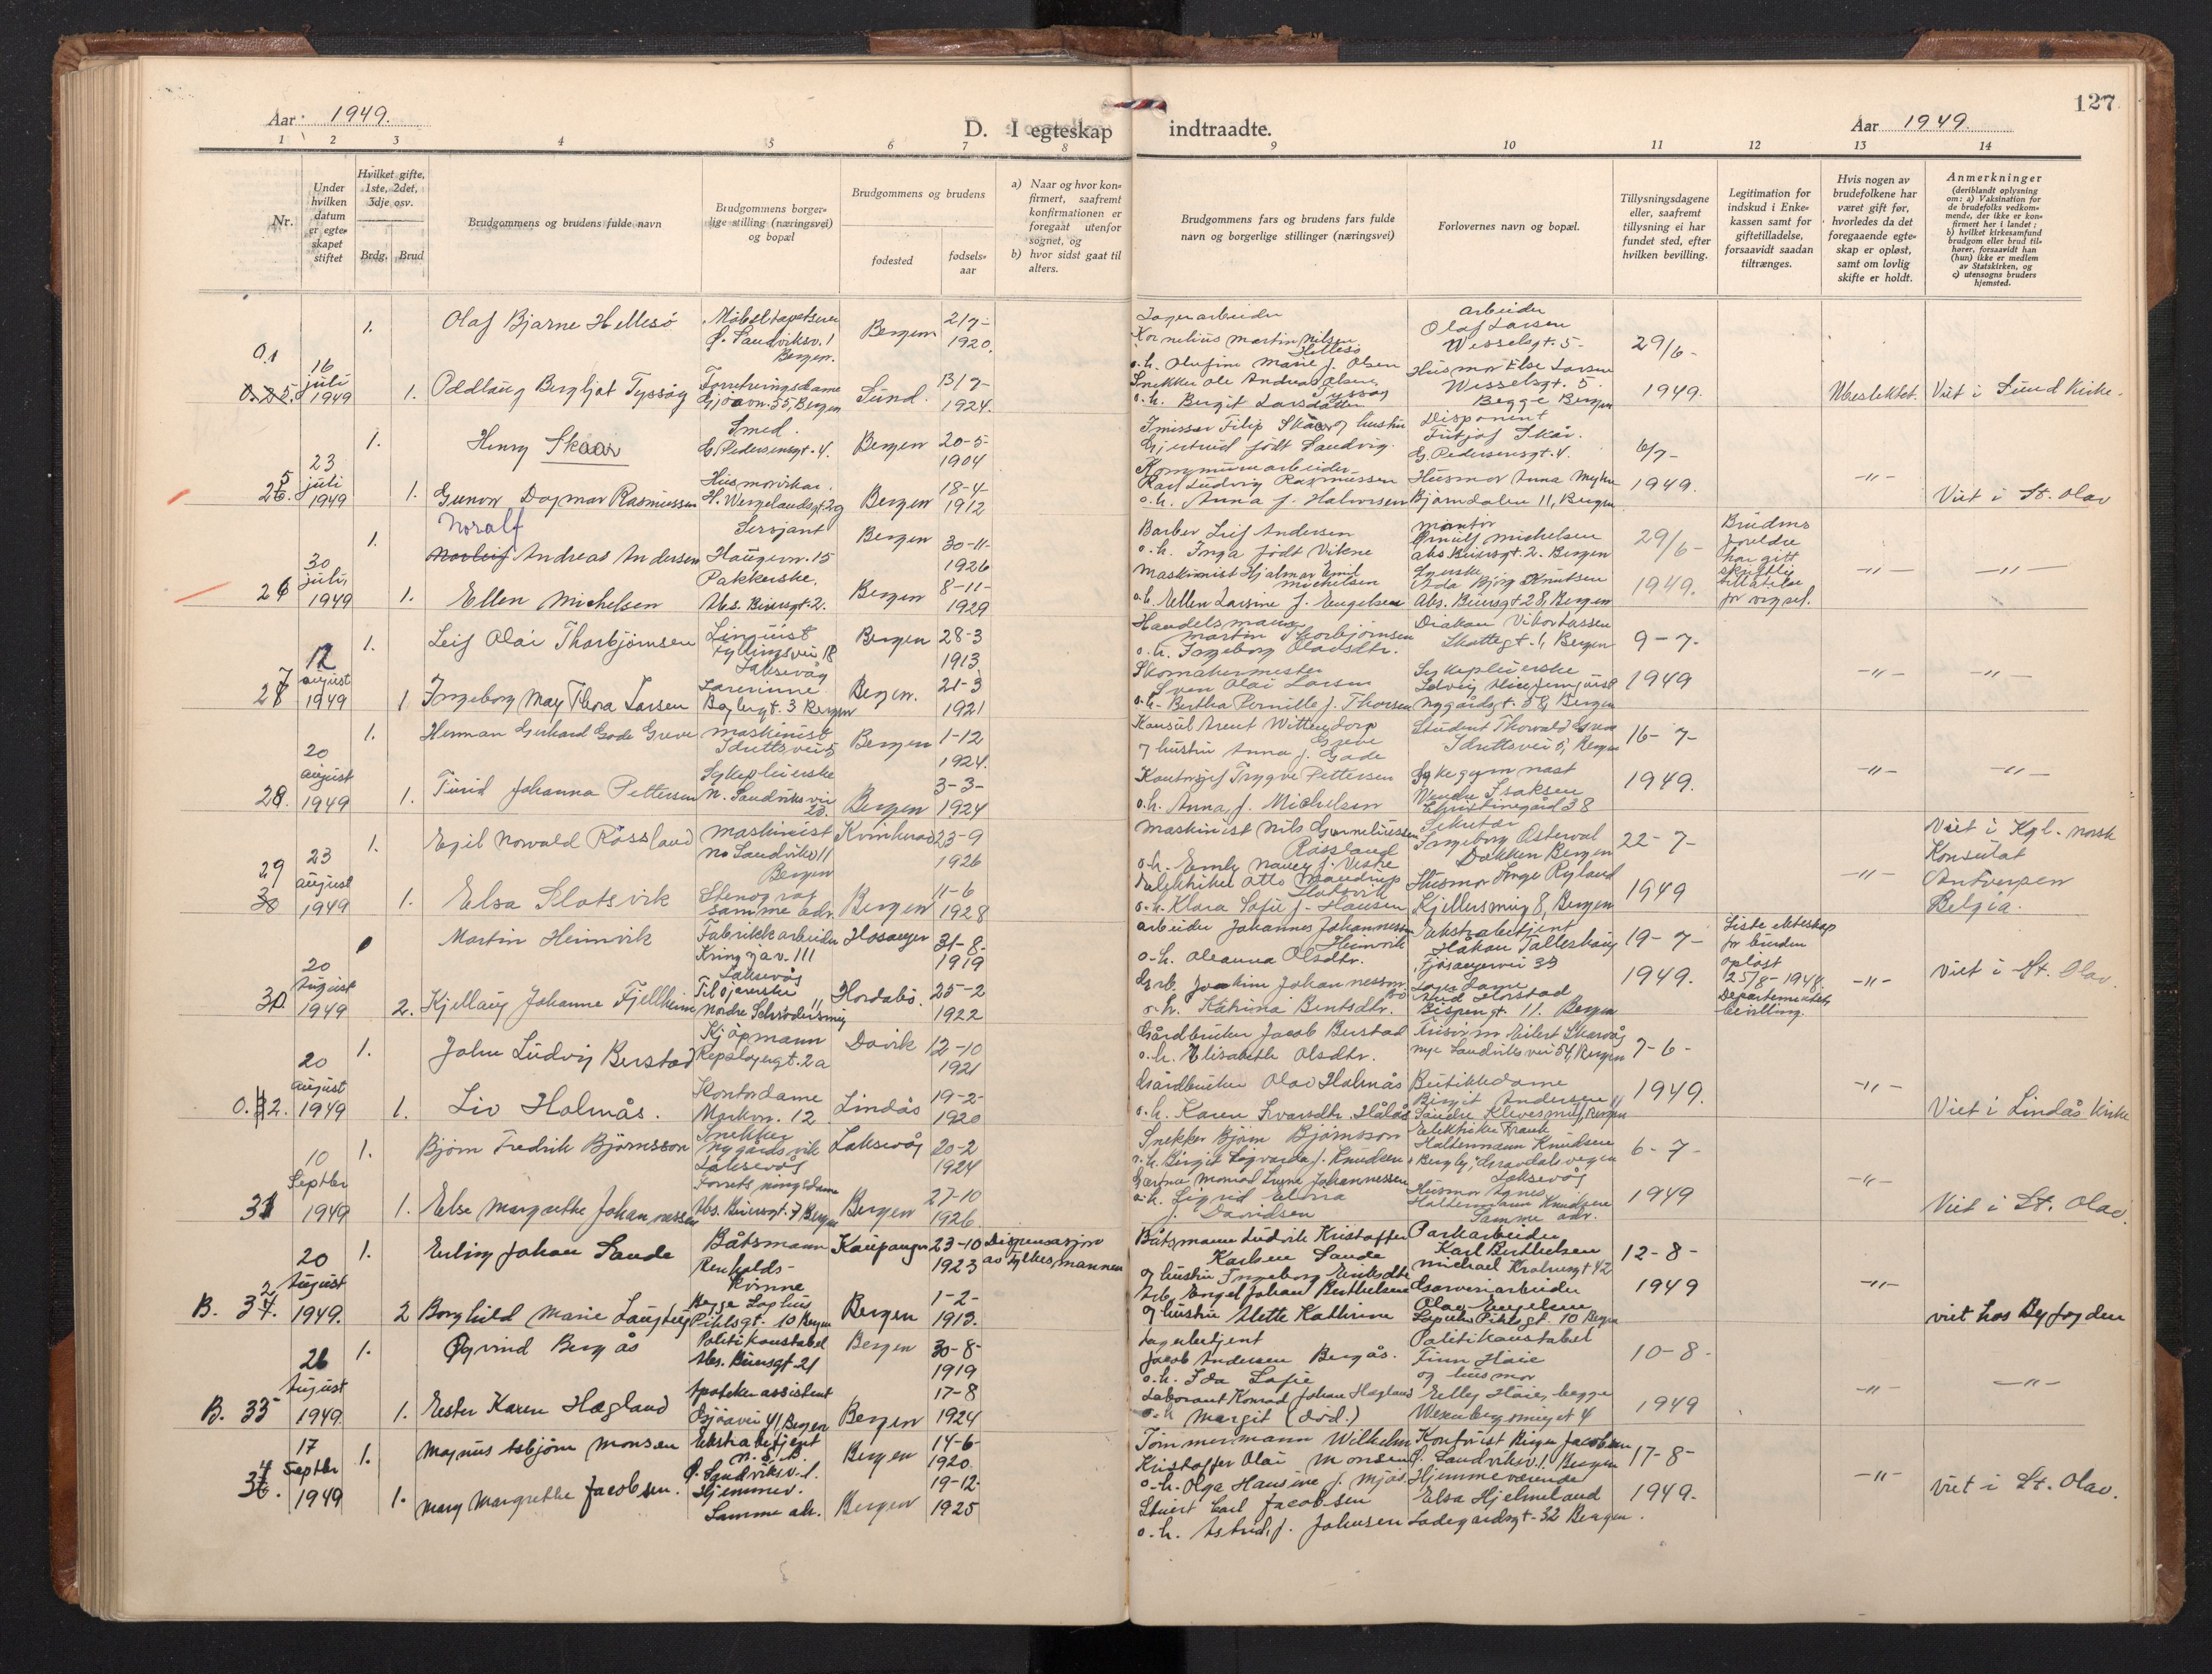 Aar 1949.
D. I egteskap indtraadte.
Aar 1949.
127
1 2 3 4 5 6 7 8 9 10 11 12 13 14
Nr.
Under hvilken datum er egteskapet stiftet
Hvilket gifte, 1ste, 2det, 3dje osv.
Brdg. Brud
Brudgommens og brudens fulde navn
Brudgommens borgerlige stilling (næringsvei) og bopæl
Brudgommens og brudens
fødested
fødselsaar
a) Naar og hvor konfirmert, saafremt konfirmationen er foregaat utenfor sognet, og
b) hvor sidst gaat til alters.
Brudgommens fars og brudens fars fulde navn og borgerlige stillinger (næringsvei)
Forlovernes navn og bopæl.
Tillysningsdagene eller, saafremt tillysning ei har fundet sted, efter hvilken bevilling.
Legitimation for indskud i Enkekassen samt for giftetilladelse, forsaavidt saadan tiltrænges.
Hvis nogen av brudefolkene har været gift før, hvorledes da det foregaaende egteskap er opløst, samt om lovlig skifte er holdt.
Anmerkninger
(deriblandt oplysning om: a) Vaksination for de brudefolks vedkommende, der ikke er konfirmert her i landet; b) hvilket kirkesamfund brudgom eller brud tilhører, forsaavidt han (hun) ikke er medlem av Statskirken, og c) utensogns bruders hjemsted.
O.1 16 juli 1949
1. Olaf Bjarne Hellesö
Ø. Sandviksv. 1 Bergen.
Bergen 21/7- 1920.
1. Oddlaug Bergljot Tyssöy
Forretningsdame Gjöavn. 55, Bergen
Sund. 13/7- 1924.
Lagerarbeider Kornelius Martin Nilsen Hellesö
o.h. Olufine Marie f. Olsen
Snekker Ole Andreas Olsen Tyssöy
o.h. Bergit Larsdatter
Arbeider Olaf Larsen Wesselsgt. 5-
Husmor Else Larsen Wesselsgt. 5. Begge Bergen
29/6- 1949.
Ubeslektet. Viet i Sund Kirke.
25. 23 juli 1949
1. Henry Skaar
Smed. C. Pedersensgt. 4.
Bergen 20-5- 1904
1. Gunvor Dagmar Rasmussen
Husmorvikar. H. Wergelandsgt. 29
Bergen 18-4- 1912
Filip Skaar og hustru Gjertrud født Sandvig.
Kommunearbeider Karl Ludvig Rasmussen
o.h. Anna f. Halvorsen
Disponent Fritjof Skår. C. Pedersensgt. 4.
Husmor Anna Myhre Bjørndalen 11, Bergen
6/7- 1949.
-"- Viet i St. Olav
26 30 juli, 1949
1. Noralf Andreas Andersen
Sersjant Haugevn. 15
Bergen 30-11- 1926
1. Ellen Michelsen
Pakkerske. Abs. Beiersgt. 2.
Bergen 8-11- 1929
Barber Leif Andersen
o.h. Inga født Vikne
Maskinist Hjalmar Emil Michelsen
o.h. Ellen Larsine f. Engelsen
Montör Ørnulf Michelsen Abs. Beiersgt. 2. Bergen
Bjørg Knutsen Abs. Beiersgt 28, Bergen
29/6- 1949.
Brudens foreldre har gitt skriftlig tillatelse for vigsel.
-"- -"-
27 12 august 1949
1. Leif Olai Thorbjörnsen
Laksevåg
Bergen 28-3 1913
1 Ingeborg May Thora Larsen
Lærerinne Baglergt. 3 Bergen
Bergen. 21-3 1921
Handelsmann Martin Thorbjörnsen
o.h. Ingeborg Oladsdtr.
Skomakermester Sven Olai Larsen
o.h. Bertha Pernille f. Thorsen
Diakon Viktor Lassen Skottegt. 1, Bergen
Sykepleierske Nygårdsgt. 58, Bergen
9-7- 1949
-"- -"-
28. 20 august 1949
1. Herman Gerhard Gade Greve
Maskinist Idrettsvei 5
Bergen 1-12 1924.
1. Turid Johanna Pettersen
Sykepleierske N. Sandviksvei 23.
Bergen 3-3- 1924
Konsul Arent Wittendorp Greve og hustru Anna f. Gade
Kontorsjef Trygve Pettersen
o.h. Anna f. Michelsen
Student Thorvald Greve Idrettsvei 5, Bergen
Sykegymnast Wenche Isaksen Christinegård 38
16-7- 1949.
-"- -"-
29 23 august 1949
1. Egil Norvald Rössland
Maskinist Bergen
Kvinherad 23-9 1926
1. Elsa Slotsvik
Stenograf samme adr.
Bergen 11-6 1928
Maskinist Nils Corneliussen Rössland
Elektriker Otto Slotsvik
o.h. Klara Sofie f. Hansen
Sekretær Ingeborg Østervol Dokken Bergen
Husmor Inga Ryland 8, Bergen
22-7- 1949
-"- Viet i Kgl. norsk Konsulat Antwerpen Belgia.
30 20 August 1949
Martin Heimvik
Fabrikkarbeider Kringsjåv. 111 Laksevåg
Hosanger 31-8- 1919
2. Kjellaug Johanne Fjellheim
Nordre 11
Hordabö. 25-2 1922
Arbeider Johannes Johannessen Heimvik
o.h. Oleanna Olsdtr.
Joakim Johannessen
o.h. Katrina Bentsdtr.
Ekstrabetjent Håkon Tolleshaug Fjøsangervei 39
Bispengt. 11. Bergen
19-7- 1949.
Siste ekteskap for bruden opløst 25/8-1948. Departementets bevilling.
-"- Viet i St. Olav.
O. 2. 20 august 1949
1. John Ludvig Berstad
Kjöpmann Repslagergt. 2a
Davik 12-10 1921
1. Liv Holmås.
Kontordame Markvn. 12
Lindås 19-2- 1920
Gårdbruker Jacob Berstad
o.h. Elisabeth Olsdtr.
Gårdbruker Olav Holmås
o.h. Karen
Nye Sandviksvei 54, Bergen
Butikkdame Birgit Andersen
7-6- 1949.
-"- Viet i Lindås Kirke
31 10 Septbr 1949
1. Björn Fredrik Björnsson
Snekker Nygårdsvik Laksevåg
Laksevåg 20-2 1924
1. Else Margrethe Johannessen
Forretningsdame Abs. Beiersgt. 7 Bergen
Bergen 27-10 1926
Snekker Björn Björnsson
o.h. Birgit Sigvarda f. Knudsen
Johannessen
o.h. Sigrid f. Davidsen
Elektriker Frank Haltermann Knudsen Gravdalsvegen Laksevåg
Husmor Agnes Haltermann Knudsen Samme adr.
6-7- 1949
-"- Viet i St. Olav.
B. 32. 20 August 1949.
1. Erling Johan Sande
Båtsmann
Kaupanger 23-10 1923
Dispensasjon av Fylkesmannen
2 Borghild Marie Laugtug
Renholds-kvinne Begge Pihlsgt. 10 Bergen
Bergen 1-2- 1913.
Båtsmann Ludvik Kristoffer Karlsen Sande
og hustru Ingeborg Eriksdtr.
Arb. Engel Johan Berthelsen
og hustru Mette Kathrine
Parkarbeider Karl Berthelsen Michael Krohnsgt 42
Garveriarbeider Olav Engelsen Pihlsgt. 10 Bergen
12-8- 1949
-"- Viet hos Byfogden
B. 33 26 August 1949.
1. Øyvind Bergås
Politikonstabel Abs. Beiersgt. 21
Bergen 30-8- 1919
1. Ester Karen Hægland
Apotekerassistent Gjöavei 41 Bergen
Bergen 17-8 1924
Lagerbetjent Jacob Andersen Bergås.
o.h. Ida Sofie
Laborant Konrad Johan Hægland
o.h. Margit (död.)
Politikonstabel Finn Håie
og husmor Elly Håie, begge Wesenbergsmuget 4
10-8- 1949
-"- -"-
34. 17 Septbr 1949
1. Magnus Asbjörn Monsen
Ekstrabetjent Ø. Sandviksv. 1.
Bergen 14-6- 1920
1. Mary Margrethe Jacobsen.
Hjemmev. Samme adr.
Bergen 19-12- 1925
Tömmermann Wilhelm Kristoffer Olai Monsen
o.h. Olga Hansine f. Mjös
Stuert Carl Jacobsen
o.h. Astrid f. Johnsen
Kontorist Birger Jacobsen Ø. Sandviksv. 1. Bergen
Hjemmeværende Elsa Hjelmeland Ladegårdsgt. 32 Bergen.
17-8- 1949.
-"- Viet i St. Olav.